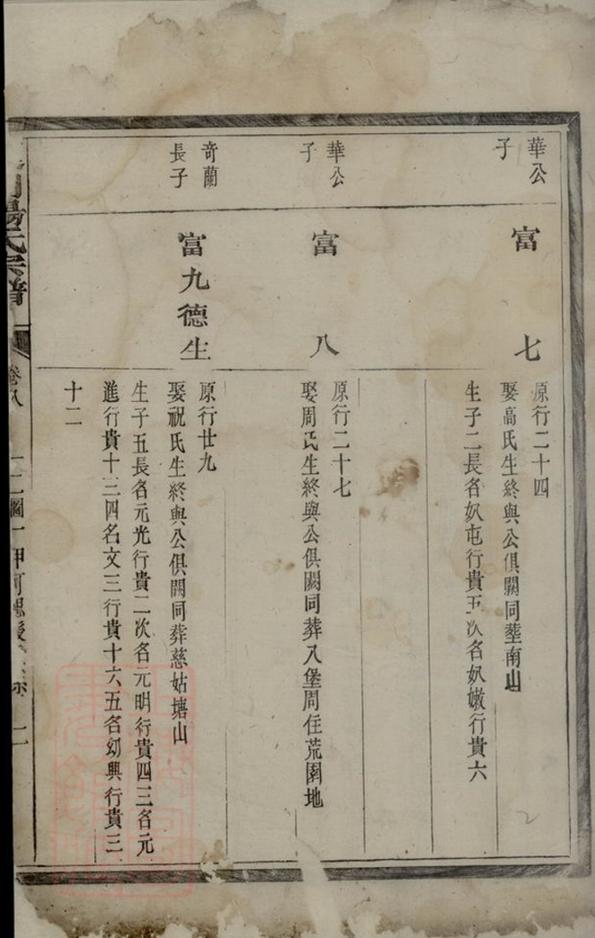 華公
子
富七
原行二十四
娶高氏生終與公俱闕同塟南山
生子二長名奴屯行貴五次名奴嫩行貴六
華公
子
富八
原行二十七
娶周氏生終與公俱闕同葬八堡周住荒園地
奇蘭
長子
富九德生
原行廿九
娶祝氏生終與公俱闕同葬慈姑塘山
生子五長名元光行貴二次名元明行貴四三名元
進行貴十三四名文三行貴十六五名幼興行貴三
十二
湯氏宗譜
卷八
一二圖一甲
二
2